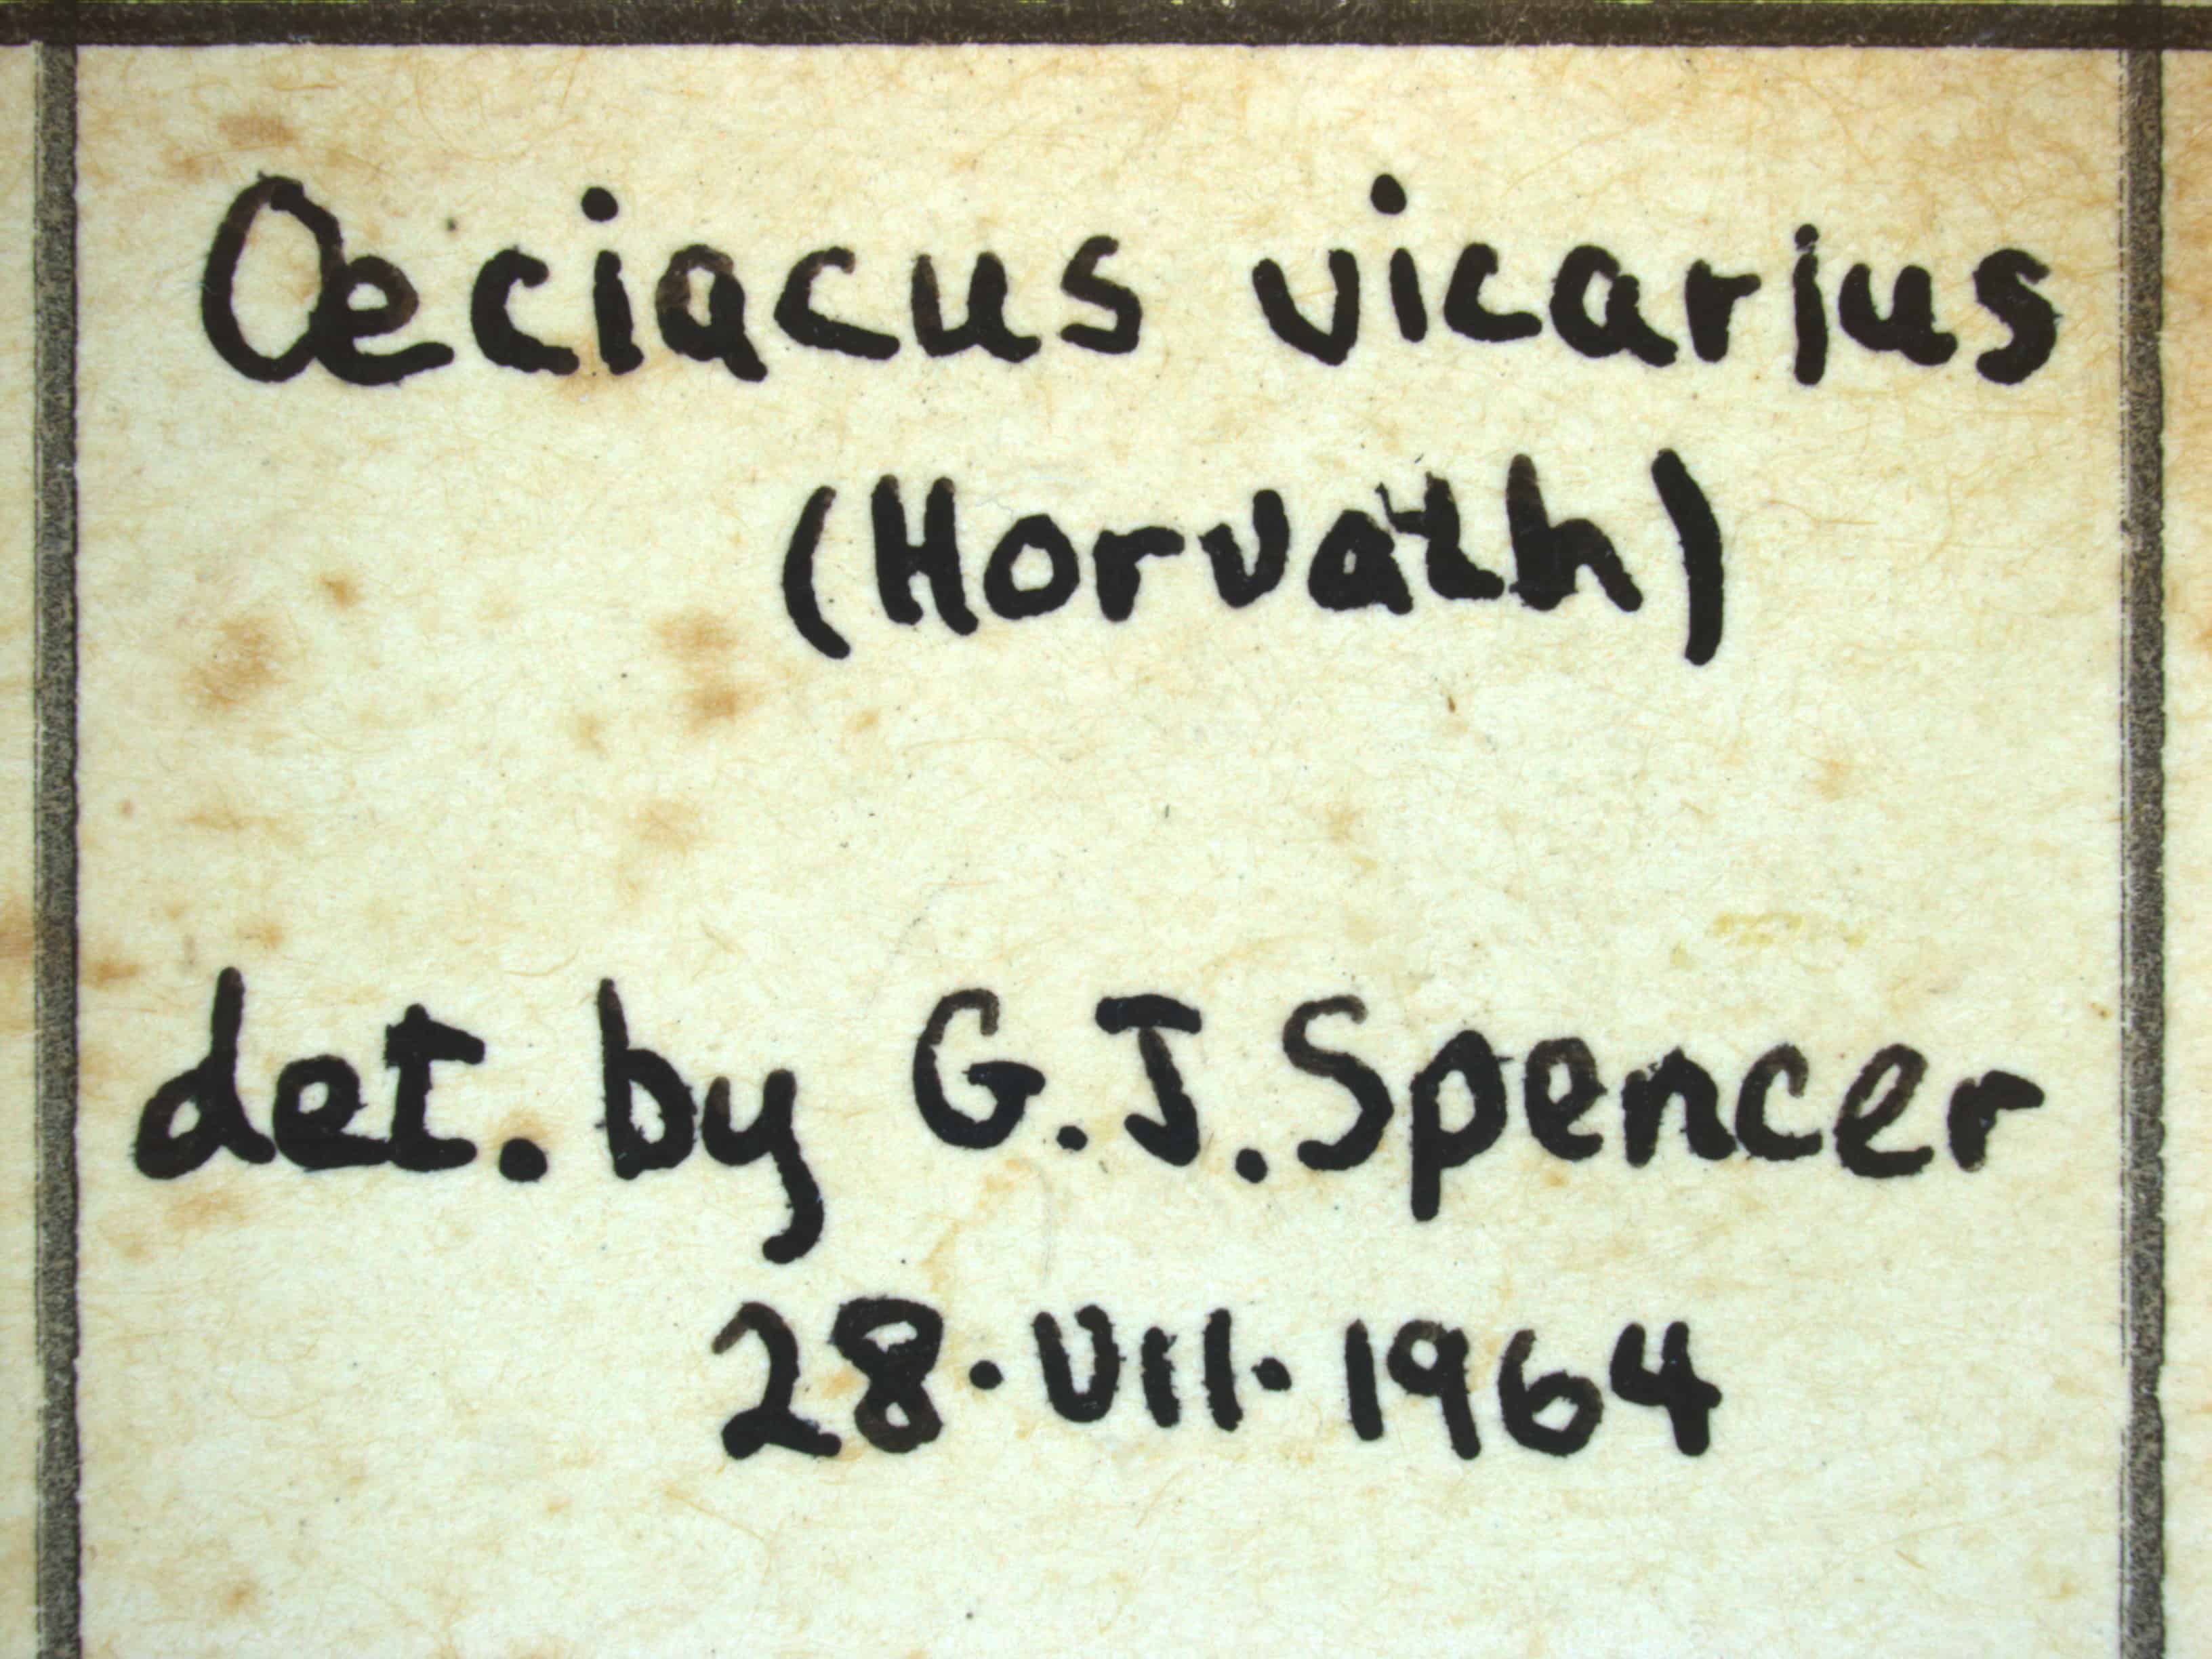 Œciacus vicarius
(Horvath)
det. by G.J. Spencer
28·VII·1964